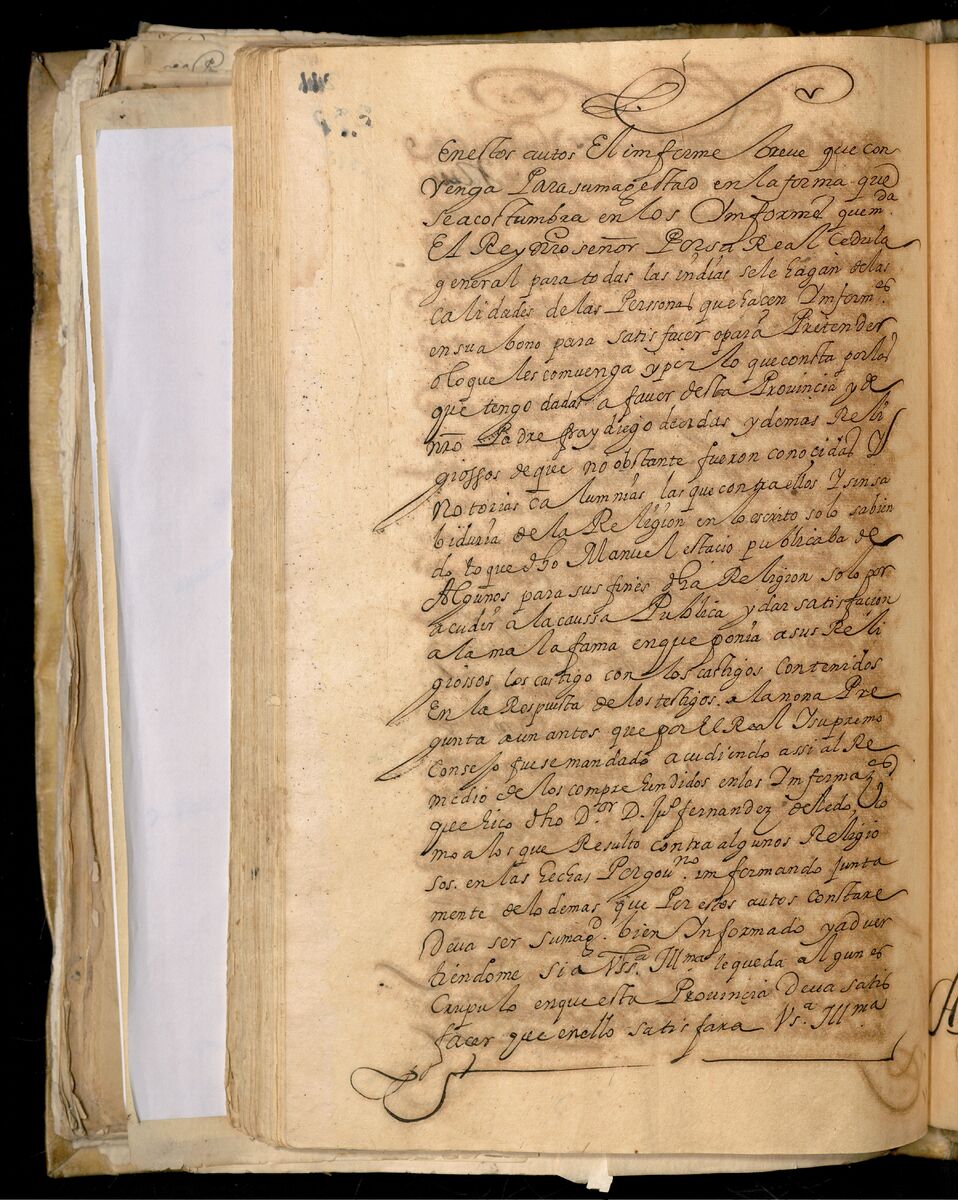 en estos autos El imforme breve que con
venga Para su magestad en la forma que
se acostumbra en los Ymformes que m.da
El Rey nro señor Por su Real Cedula
general para todas las indias se le hagan de las
calidades de las Personas que hacen Ymform.es
en su abono para satisfacer o para Pretender
o lo que les comvenga y por lo que consta por las
que tengo dadas a favor desta Provincia y de
nro Padre fray diego de
y demas Reli
giossos de que no obstante fueron conocidas Y
Notorias calumnias las que contra ellos Y sin sa
biduria de la Religion en lo escrito solo sabien
do lo que dho Manuel estacio publicaba de
Algunos para sus fines dha Religion solo por
acudir a la caussa Publica y dar satisfacion
a la mala fama en que ponia a sus Reli
giosos los castigo con los castigos contenidos
En la Respuesta de los testigos a la nona Pre
gunta aun antos que por El Real Y supremo
Consejo fuese mandado acudiendo assi al Re
medio de los comprehendidos en los Ymforma.es
que hico dho D.or D. Ju.o fernandez de
Co
mo a los que Resulto contra algunos Religio
sos. en las hechas Por gou.no imformando junta
mente de lo demas que Por estos autos constare
Deva ser su mag.d bien Informado y adver
tiendome si a Vss.a Ill.ma le queda algun es
Crupulo en que esta Provincia Deva satis
facer que en ello satisfara Vs.a Ill.ma